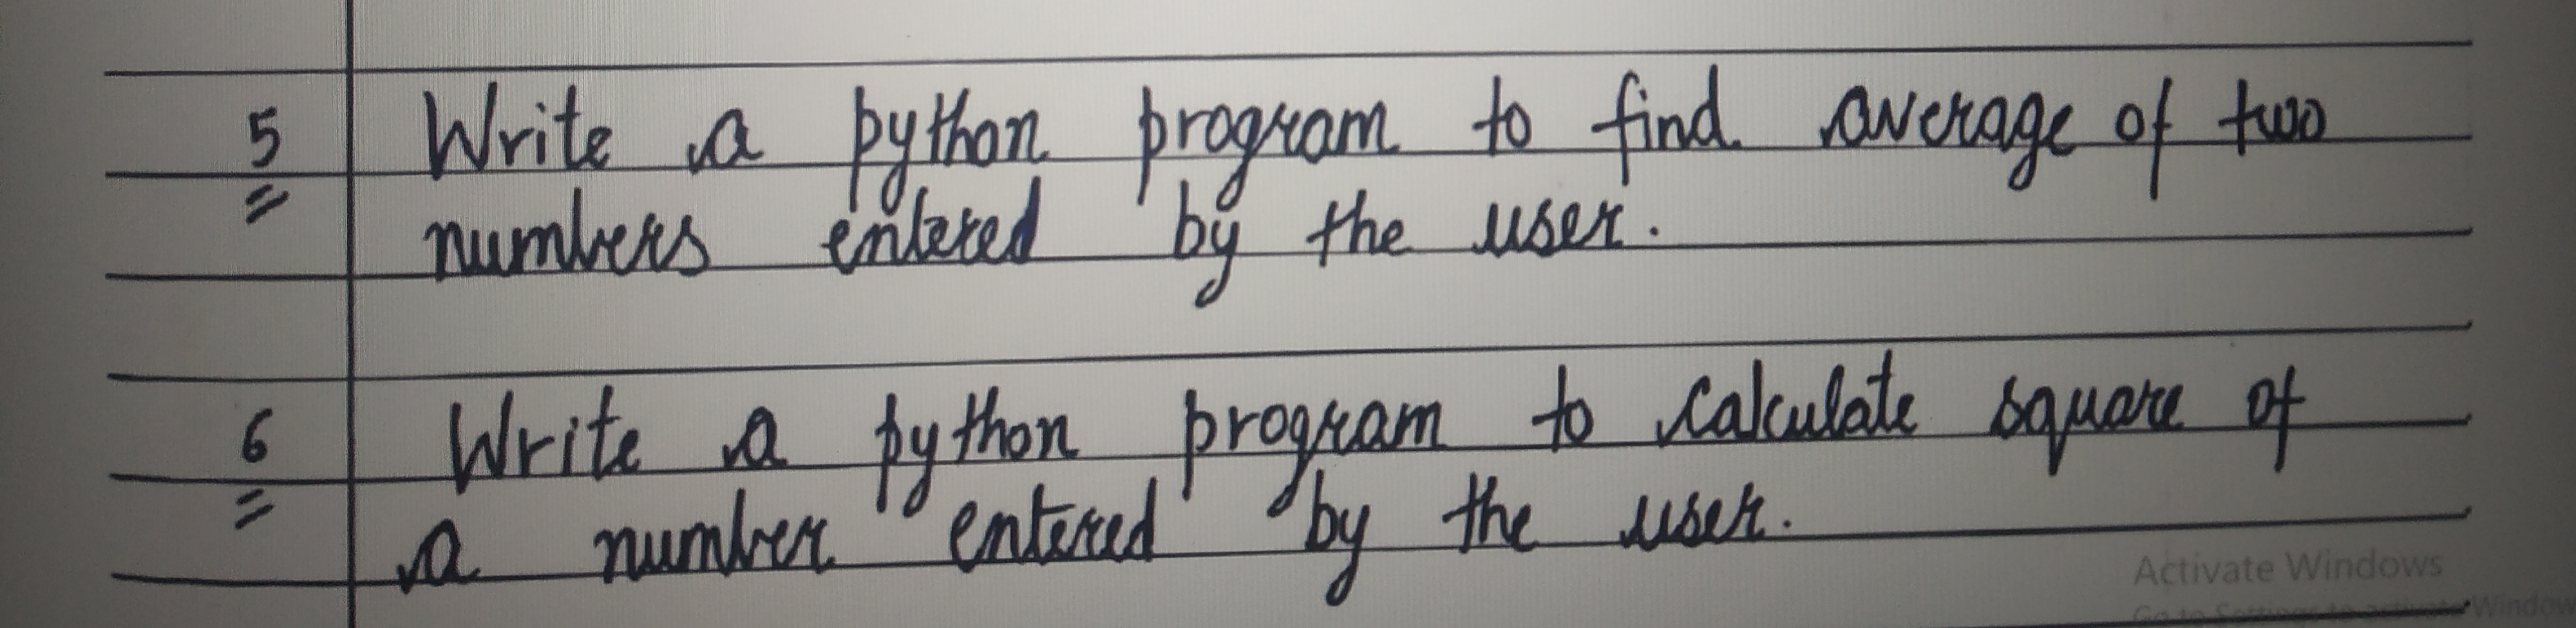 5 Write a python program to find average of two
numbers entered by the user.
6 Write a python program to calculate square of
a number entered by the user.
Activate Windows
Go to Settings to activate Windows